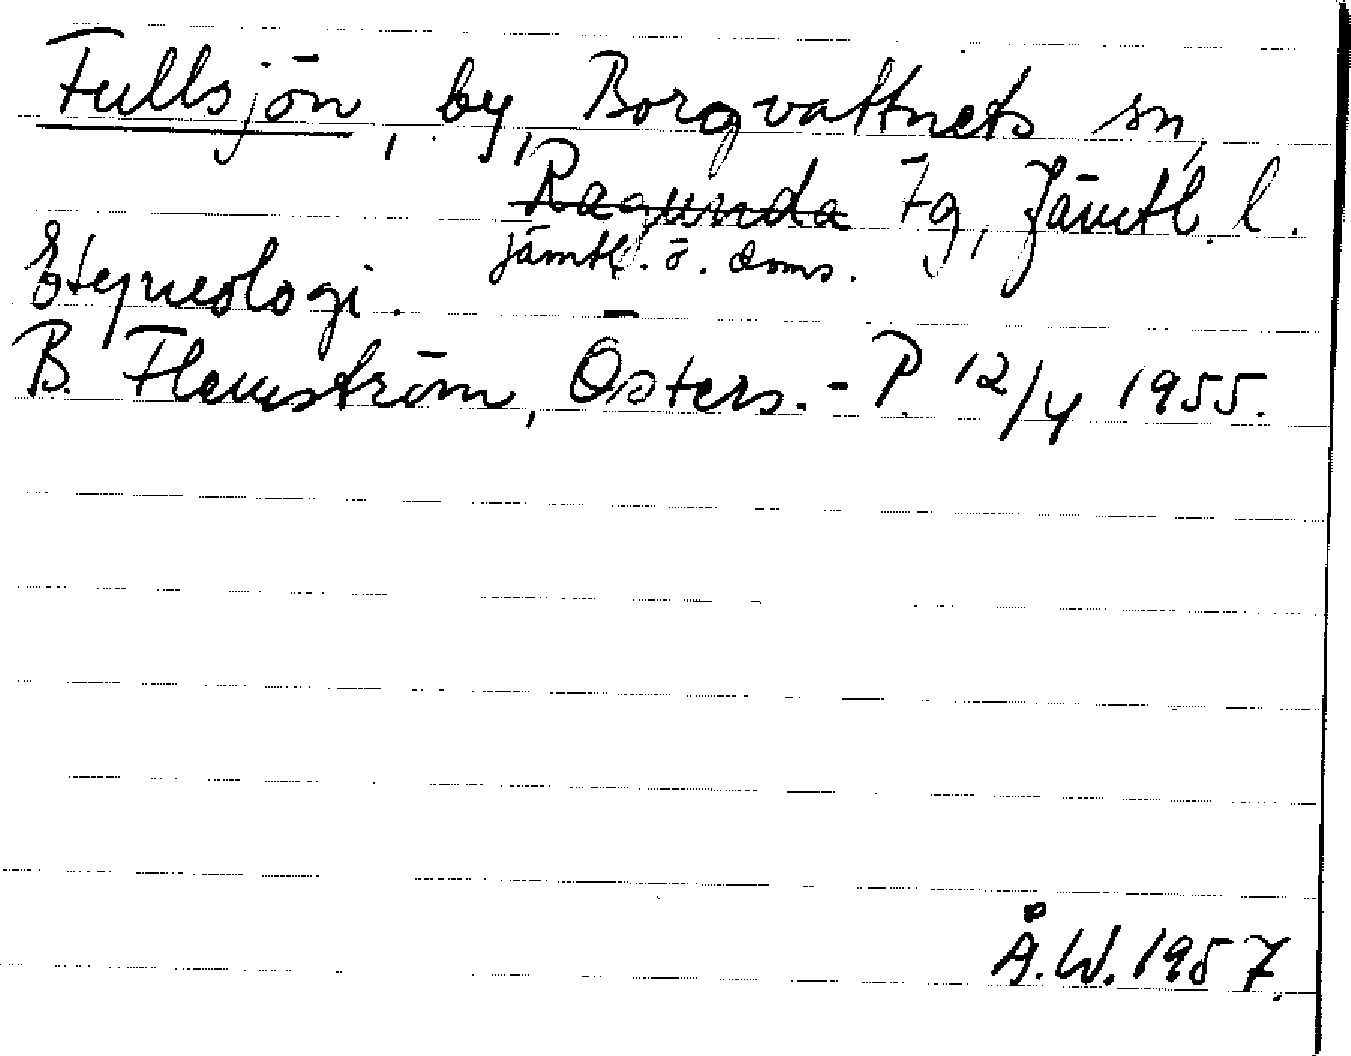 Fullsjön, by, Borgvattnets sn,
Ragunda tg, Jämtl. l.
jämtl. ö. doms.
Etymologi.
B. Flemström, Östers.-P. 12/4 1955.
Å.W. 1957.